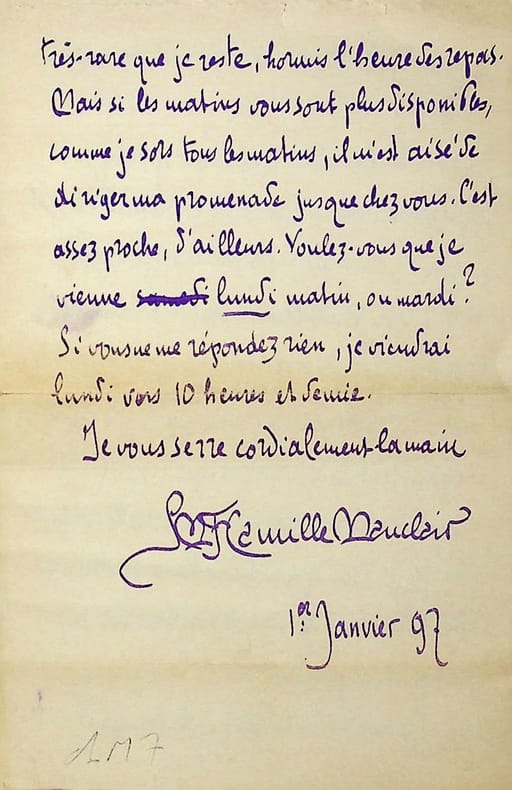 très-rare que je reste, hormis l'heure des repas.
Mais si les matins vous sont plus disponibles,
comme je sors tous les matins, il m'est aisé de
diriger ma promenade jusque chez vous. C'est
assez proche, d'ailleurs. Voulez-vous que je
vienne samedi lundi matin, ou mardi?
Si vous ne me répondez rien, je viendrai
lundi vers 10 heures et demie.
Je vous serre cordialement la main
Camille Mauclair
1er Janvier 97